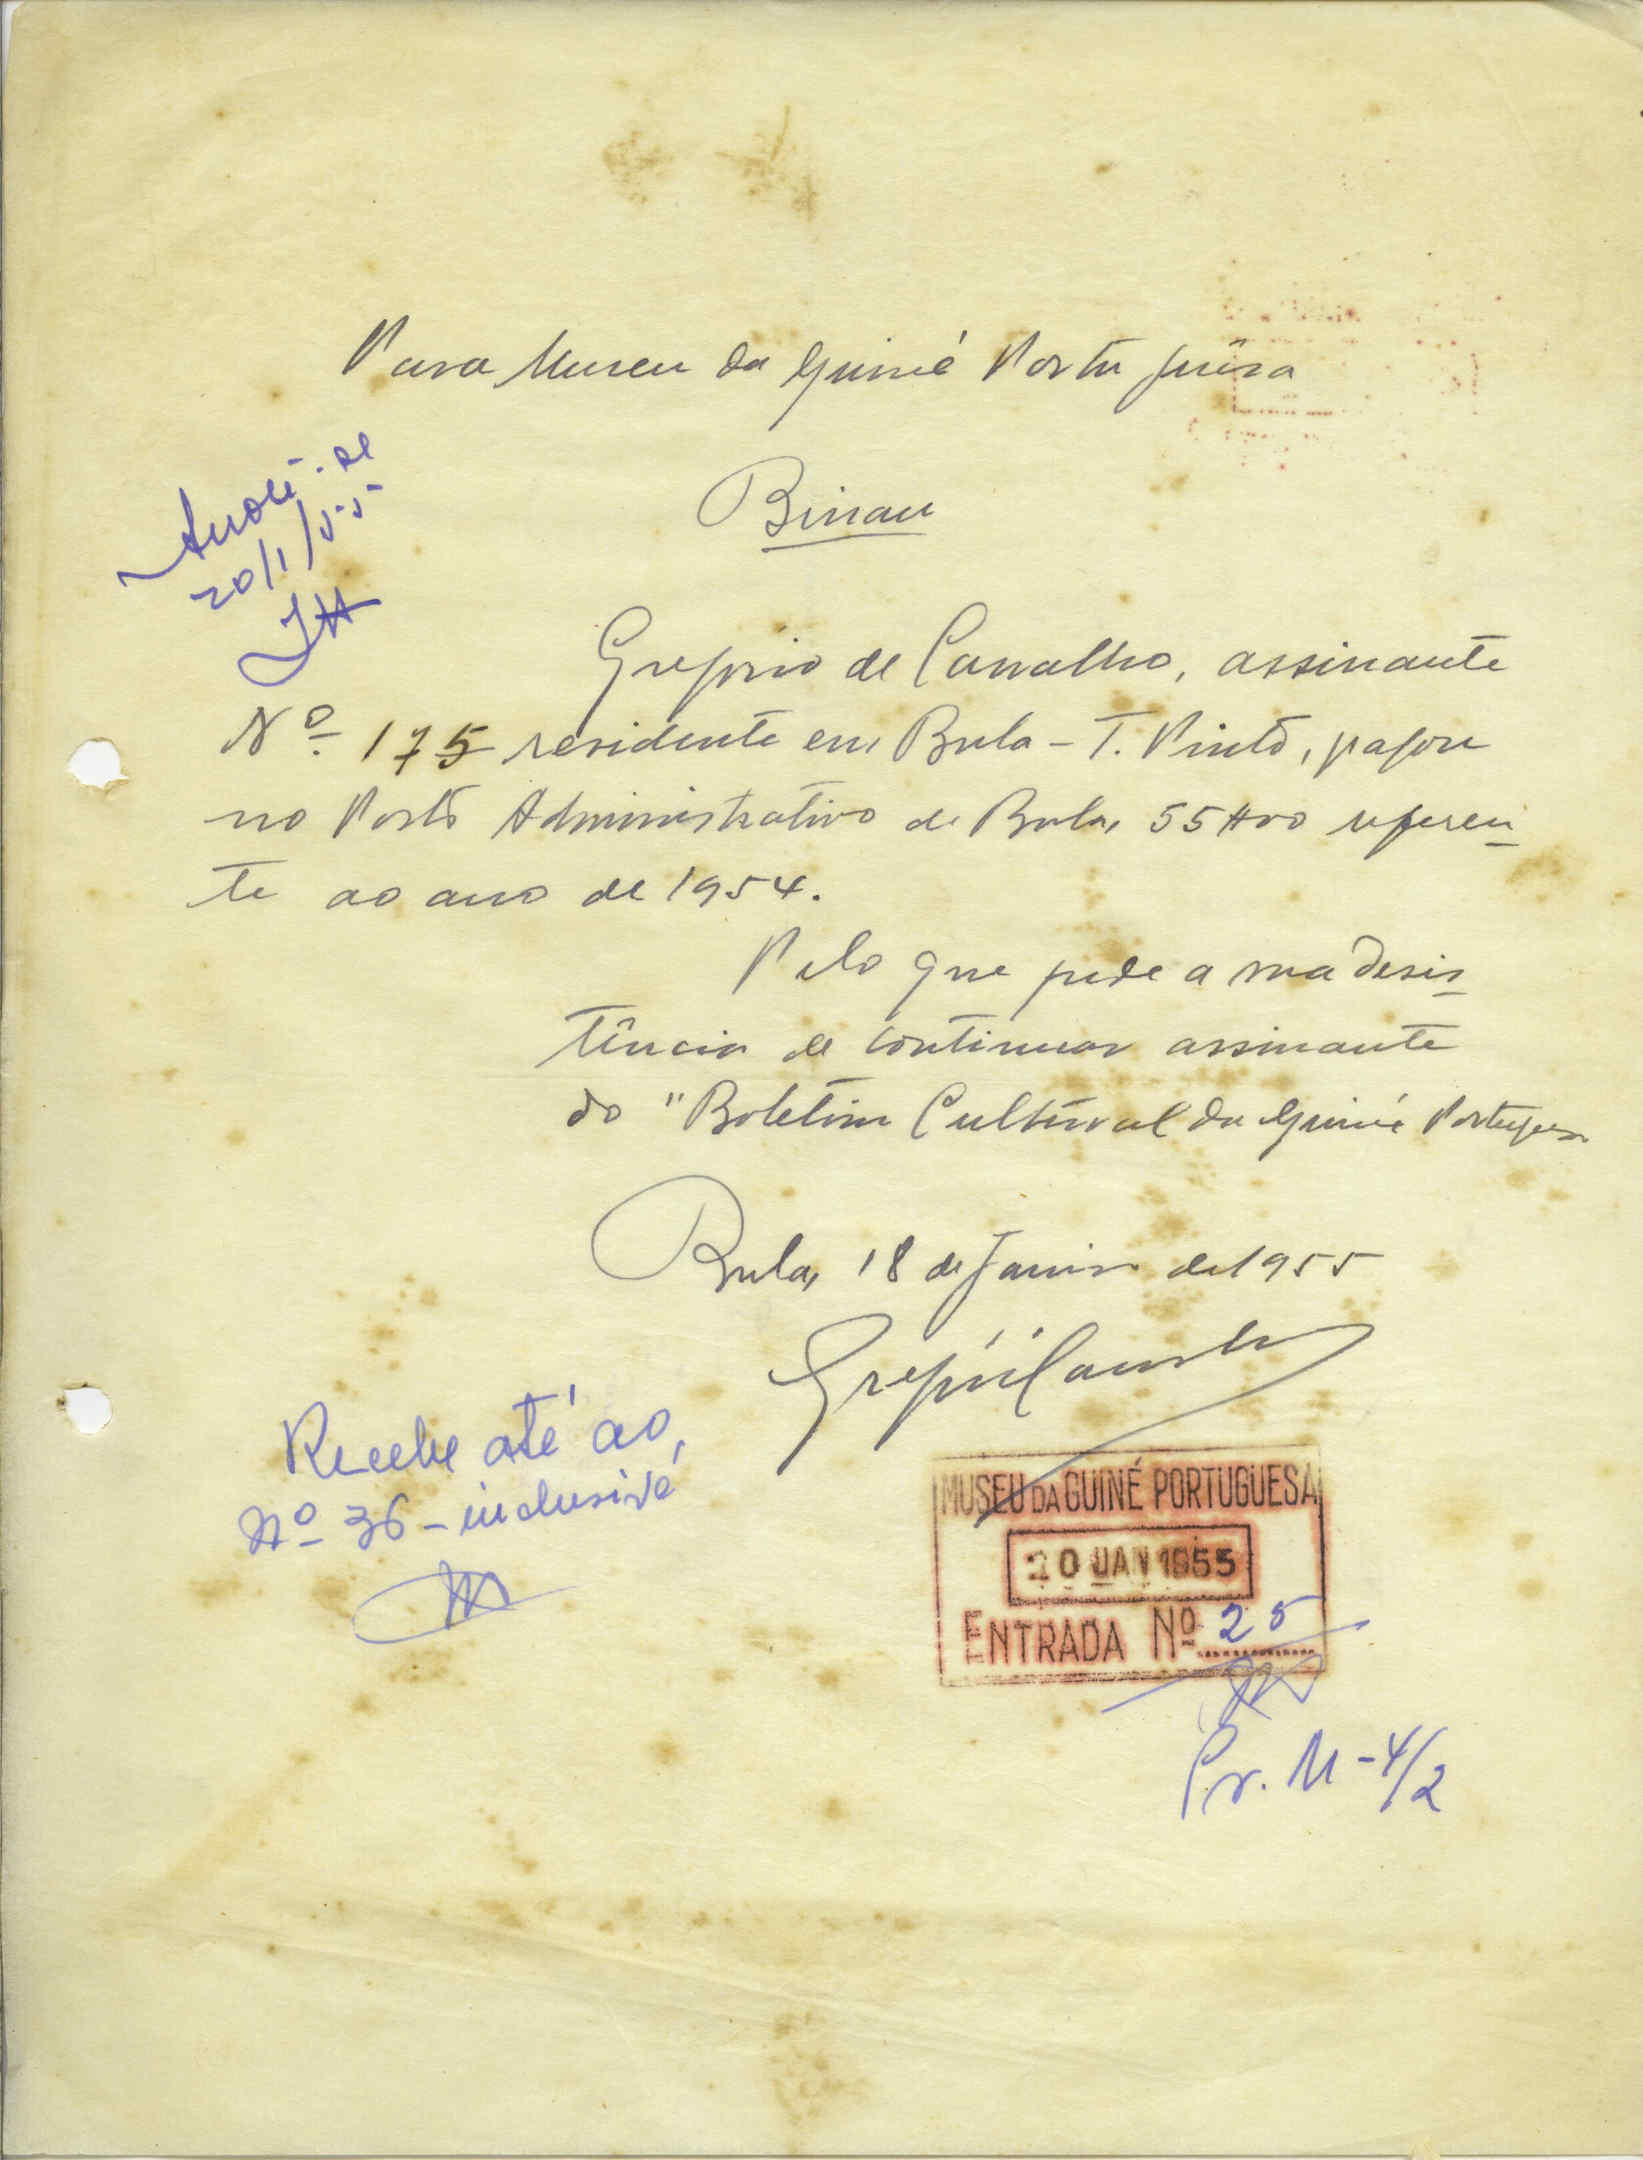 Para Museu da Guiné Portuguêsa
Bissau
Anote-se
20/1/55
Gregorio de Carvalho, assinante
Nº 175 residente em Bula - T. Pinto, pagou
no Posto Administrativo de Bula, 55$00 referen-
te ao ano de 1954.
Pelo que pede a sua desis-
tência de continuar assinante
do "Boletim Cultural da Guiné Portuguesa
Bula, 18 de Janeiro de 1955
Recebe até ao,
Nº 36 - inclusivé
MUSEU DA GUINÉ PORTUGUESA
20 JAN 1955
ENTRADA Nº 25
Pr. M-4/2